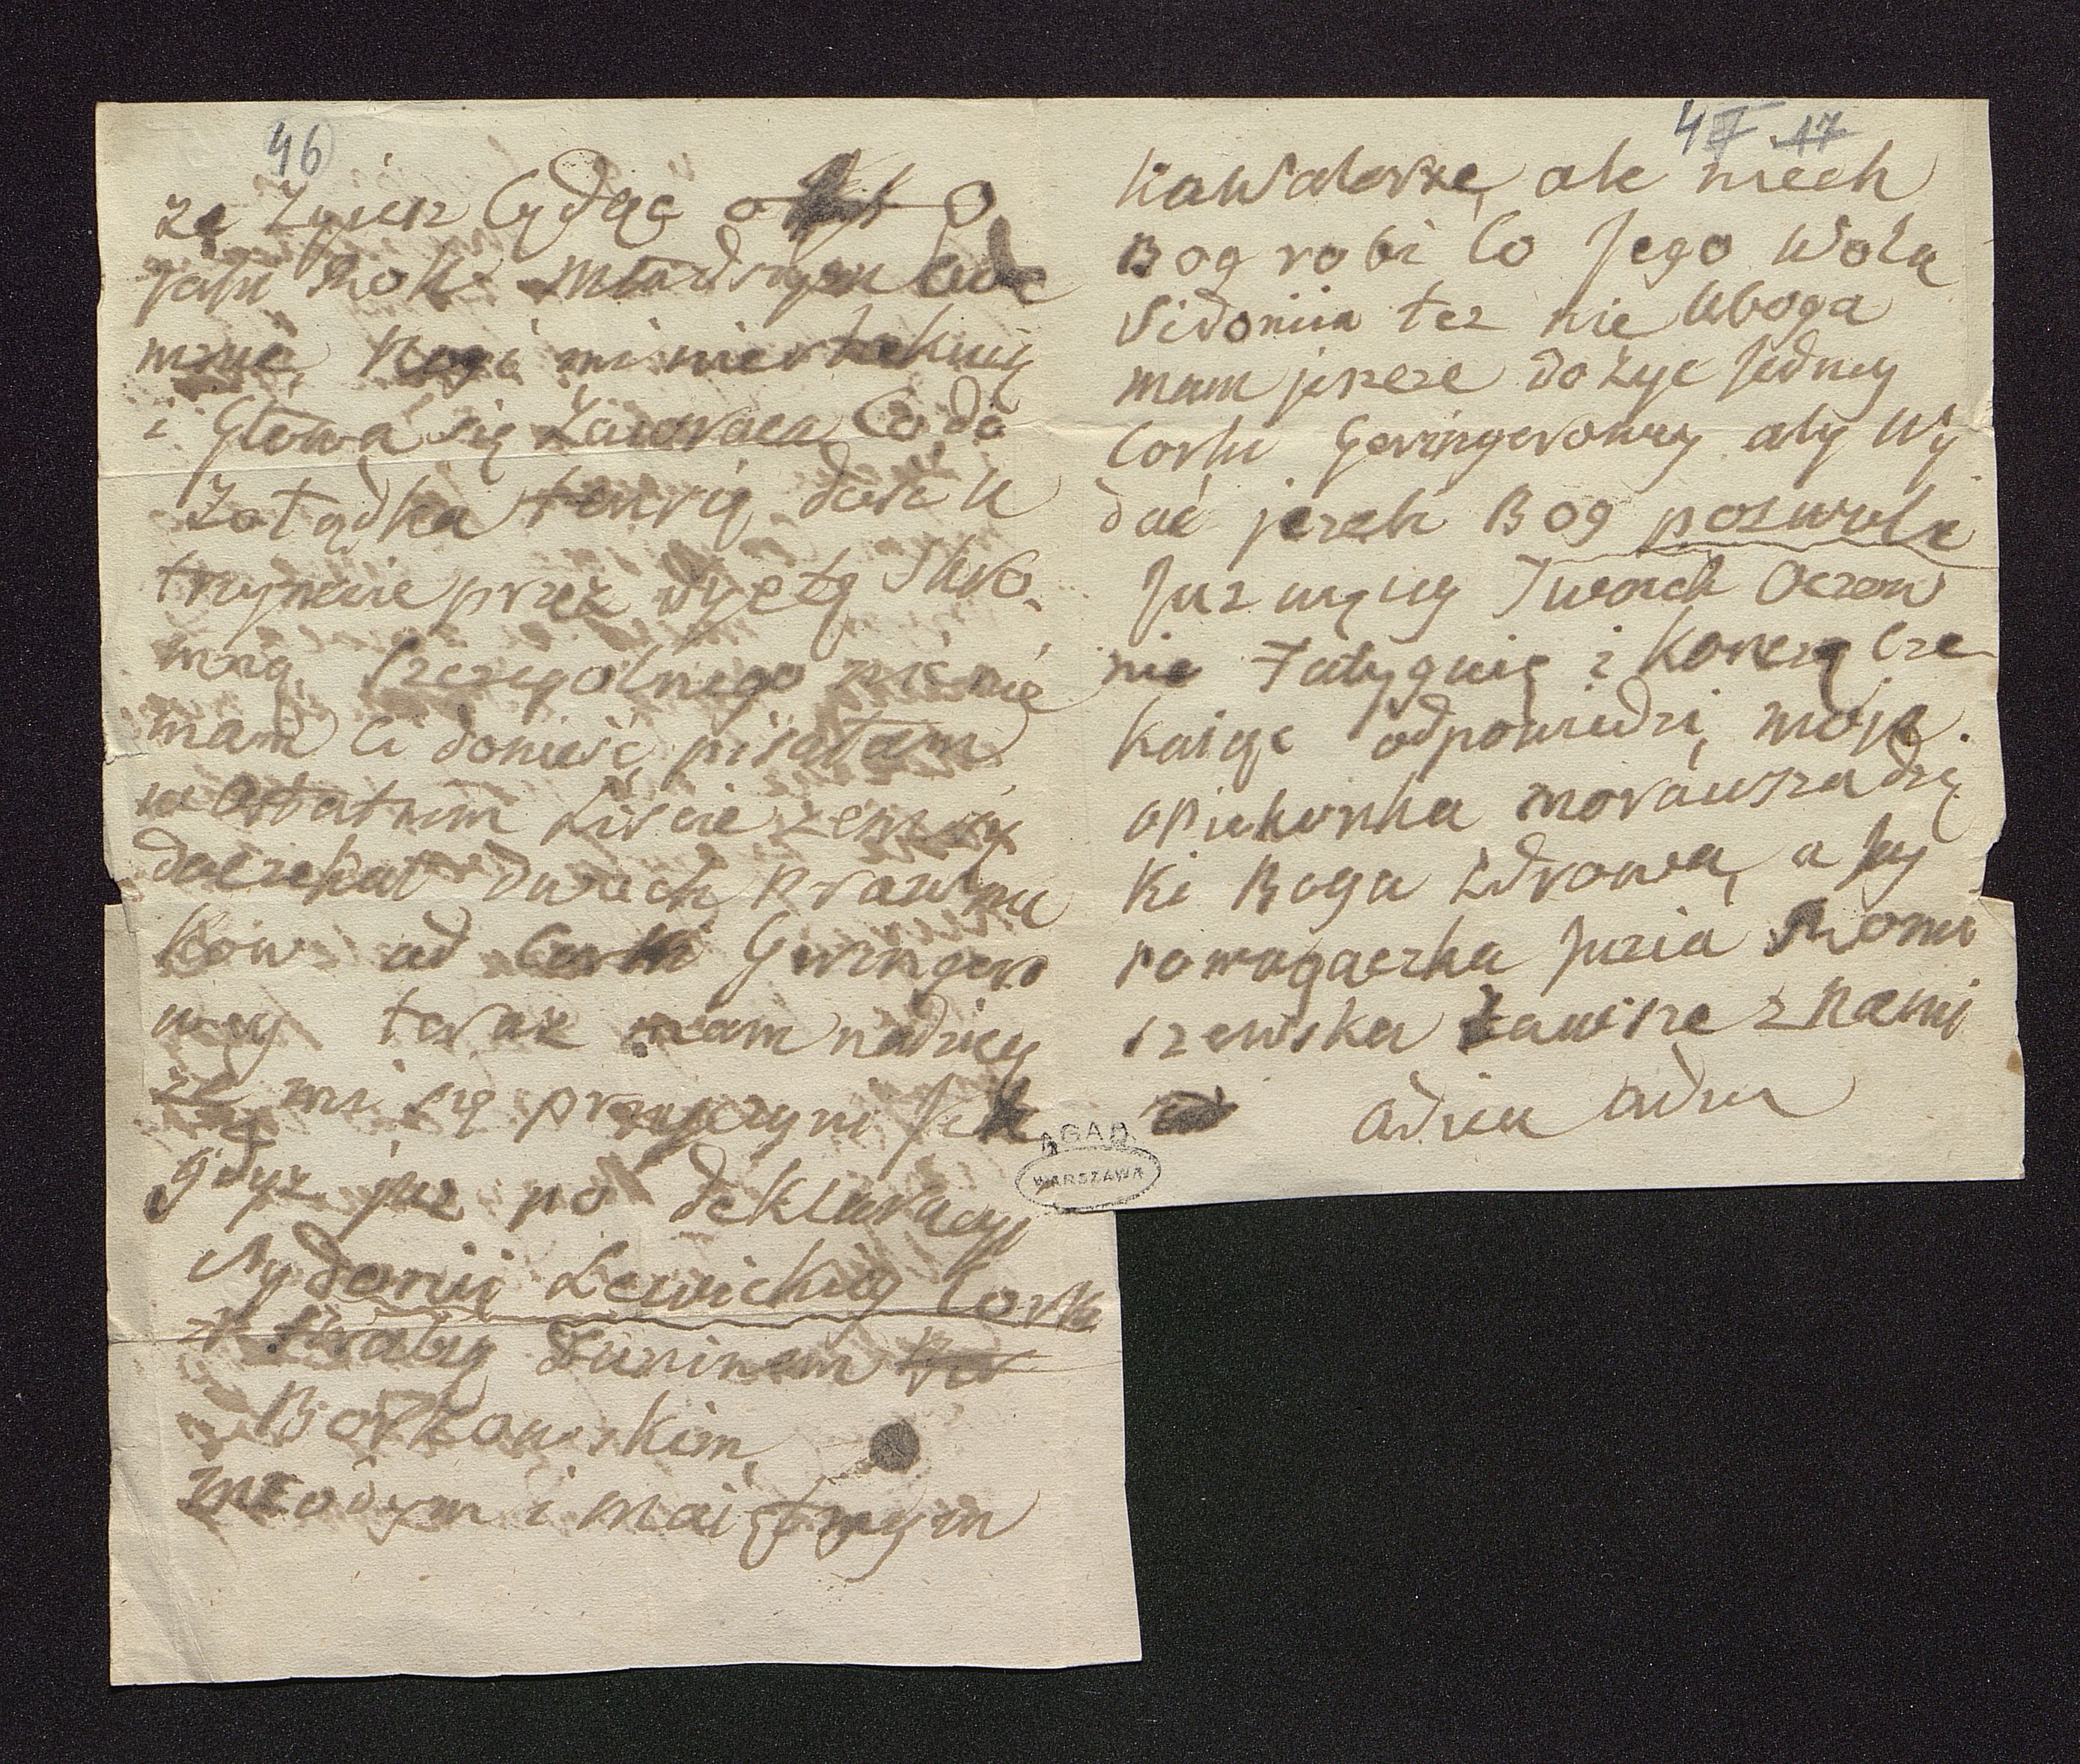 46
że żyiesz będąc o
jaki Rok młodszym ode
mnie, Nogi mi niestękuią
i Głowa się Zawraca, Co do
Żołądka ten się da u
trzymuie przez dyetę Skro-
mną, Szczegolnego nic nie
mam Ci donieść, pisałam
w ostatnim Liście żem się
doczekał dwóch Prawnu
kow od Corki Geringero
wey teraz mam nadzieię
że mi się przyczyni
gdyż już po deklaracyi
Sydonii Lewickiey Corki
z Hrabią Duninem
Borkowskim,
młodym i maiętnym
47 17
Kawalerze, ale niech
Bog robi Co Jego Wola
Sidoniia tez nie Uboga
mam jeszcze dożyc Jedney
Corki Geringerowey aby Wy
dać jezeli Bog pozwoli
Juz więcey Twoich Oczow
nie Fatyguię i Kończę Cze-
kaiąc odpowiedzi, moja
opiekunka Morawska dzię
ki Bogu Zdrowa, a Jey
Pomagaczka Juzia Romi
szewska Zawsze z Nami
adieu adieu
AGAD
WARSZAWA